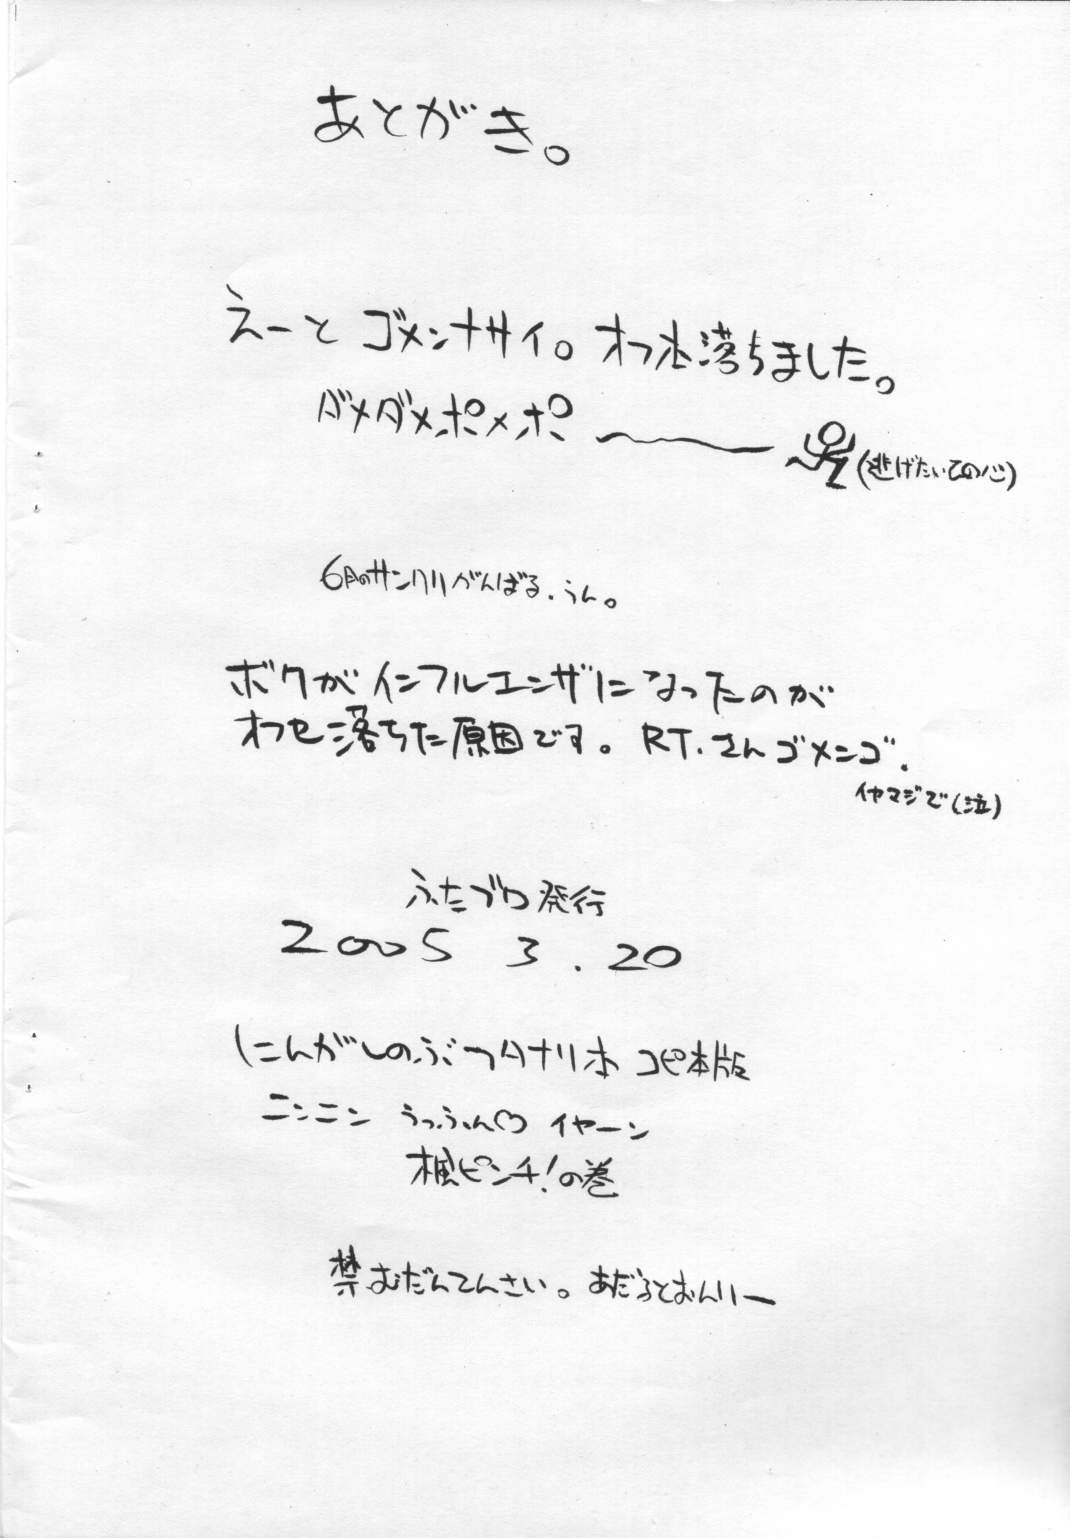 あとがき。
えーと ゴメンナサイ。オフ本落ちました。
ダメダメポメポ
(逃げたい心)
6月のサンクリがんばる.うん。
ボクがインフルエンザになったのが
オフセ落ちた原因です。RT.さんゴメンゴ.
イヤマジで(泣)
ふたブロ発行
2005 3.20
にんがしのぶフタナリ本 コピ本版
ニンニン うっふん♡ イヤーン
楓ピンチ!の巻
禁むだんてんさい。あだるとおんりー